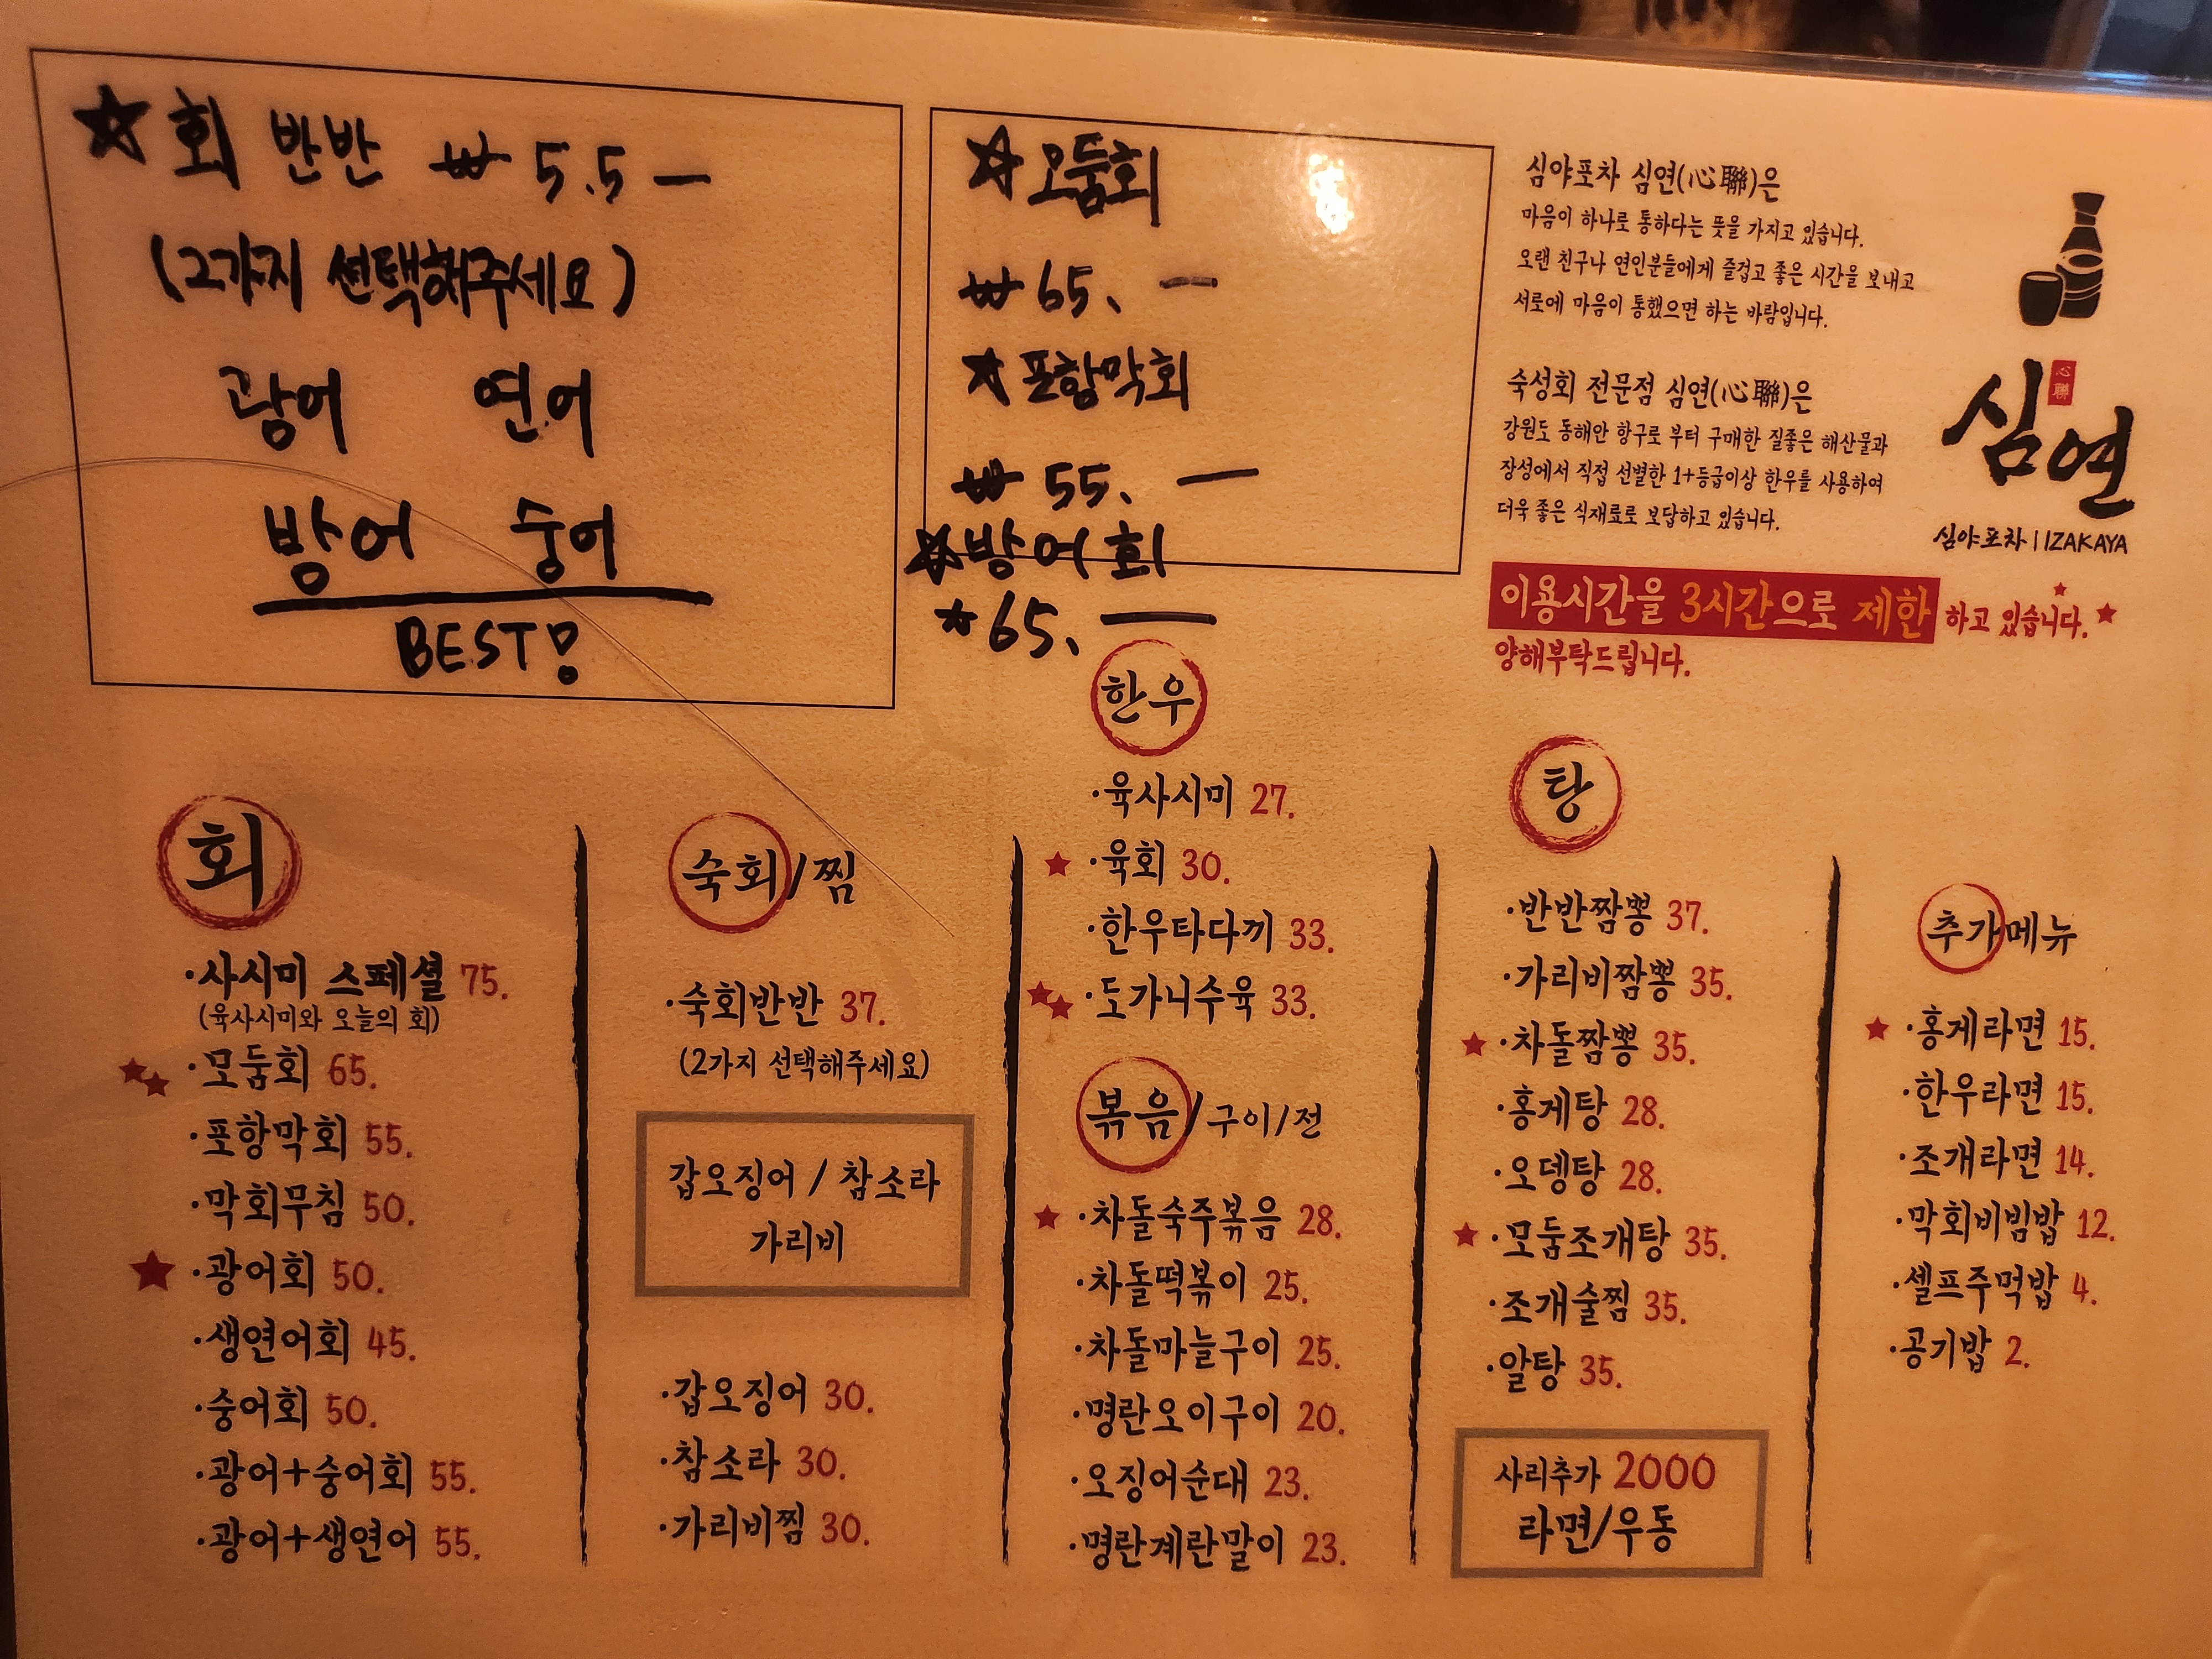 ☆ 회 반반 ₩ 5.5 —
(2가지 선택해주세요)
광어 연어
방어 숭어
BEST!
☆모둠회
₩ 65. —
☆포항막회
₩ 55. —
☆방어회
☆65. —
심야포차 심연(心聯)은
마음이 하나로 통하다는 뜻을 가지고 있습니다.
오랜 친구나 연인분들에게 즐겁고 좋은 시간을 보내고
서로에 마음이 통했으면 하는 바람입니다.
숙성회 전문점 심연(心聯)은
강원도 동해안 항구로 부터 구매한 질좋은 해산물과
장성에서 직접 선별한 1+등급이상 한우를 사용하여
더욱 좋은 식재료로 보답하고 있습니다.
心聯
심연
심야포차 | IZAKAYA
이용시간을 3시간으로 제한 하고 있습니다.
양해부탁드립니다.
회
·사시미 스페셜 75.
(육사시미와 오늘의 회)
★★ ·모둠회 65.
·포항막회 55.
·막회무침 50.
★ ·광어회 50.
·생연어회 45.
·숭어회 50.
·광어+숭어회 55.
·광어+생연어 55.
숙회/찜
·숙회반반 37.
(2가지 선택해주세요)
갑오징어 / 참소라
가리비
·갑오징어 30.
·참소라 30.
·가리비찜 30.
한우
·육사시미 27.
★ ·육회 30.
·한우타다끼 33.
★★ ·도가니수육 33.
볶음/구이/전
★ ·차돌숙주볶음 28.
·차돌떡볶이 25.
·차돌마늘구이 25.
·명란오이구이 20.
·오징어순대 23.
·명란계란말이 23.
탕
·반반짬뽕 37.
·가리비짬뽕 35.
★ ·차돌짬뽕 35.
·홍게탕 28.
·오뎅탕 28.
★ ·모둠조개탕 35.
·조개술찜 35.
·알탕 35.
사리추가 2000
라면/우동
추가메뉴
★ ·홍게라면 15.
·한우라면 15.
·조개라면 14.
·막회비빔밥 12.
·셀프주먹밥 4.
·공기밥 2.